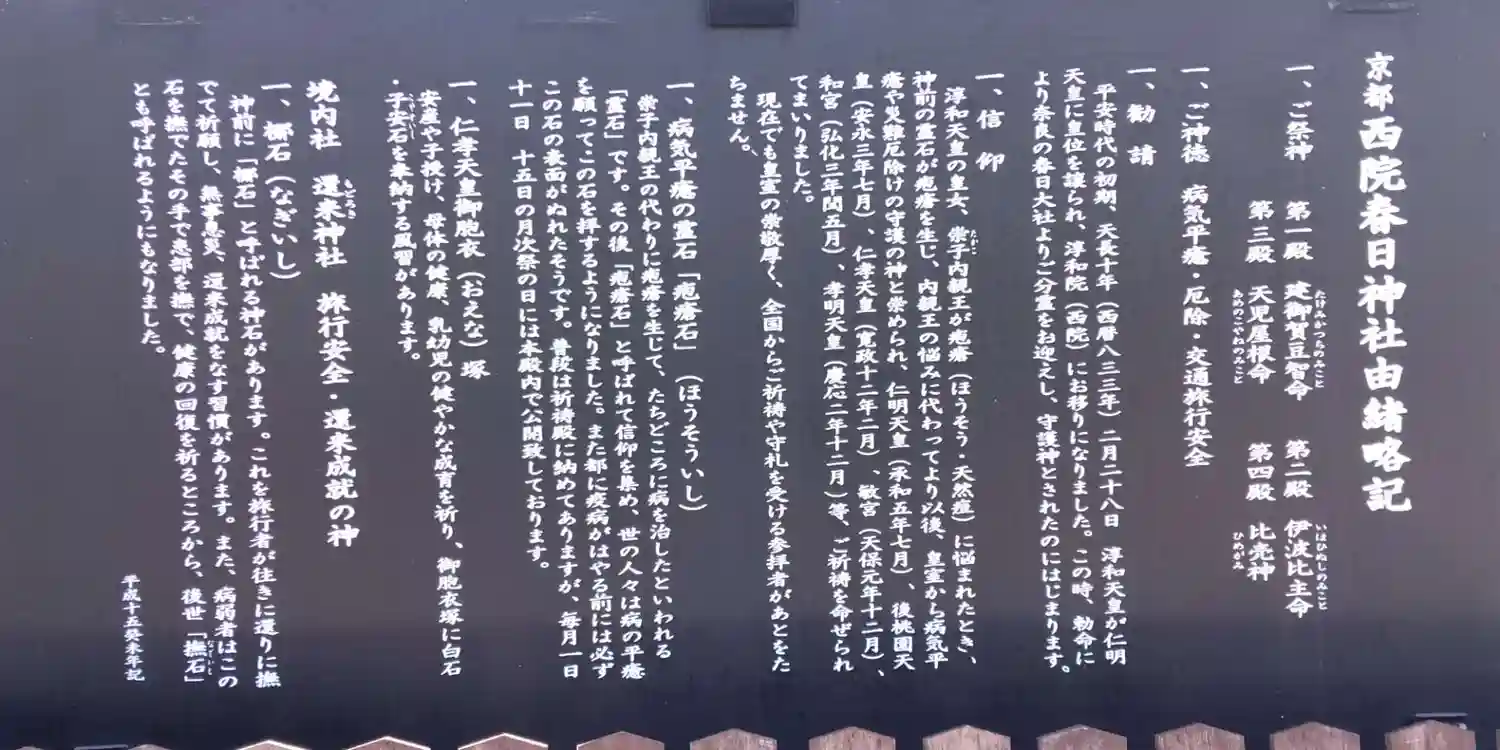 京都西院春日神社由緒略記
一、ご祭神　第一殿　建御賀豆智命　第二殿　伊波比主命
たけみかつちのみこと　いはひぬしのみこと
第三殿　天児屋根命　第四殿　比売神
あめのこやねのみこと　ひめがみ
一、ご神徳　病気平癒・厄除・交通旅行安全
一、勧請
平安時代の初期、天長十年（西暦八三三年）二月二十八日　淳和天皇が仁明
天皇に皇位を譲られ、淳和院（西院）にお移りになりました。この時、勅命に
より奈良の春日大社よりご分霊をお迎えし、守護神とされたのにはじまります。
一、信仰
淳和天皇の皇女、崇子内親王が疱瘡（ほうそう・天然痘）に悩まれたとき、
たかこ
神前の霊石が疱瘡を生じ、内親王の悩みに代わってより以後、皇室から病気平
癒や災難厄除けの守護の神と崇められ、仁明天皇（承和五年七月）、後桃園天
皇（安永三年七月）、仁孝天皇（寛政十二年二月）、敏宮（天保元年十二月）、
和宮（弘化三年閏五月）、孝明天皇（慶応二年十二月）等、ご祈祷を命ぜられ
てまいりました。
現在でも皇室の崇敬厚く、全国からご祈祷や守札を受ける参拝者があとをた
ちません。
一、病気平癒の霊石「疱瘡石」（ほうそういし）
崇子内親王の代わりに疱瘡を生じて、たちどころに病を治したといわれる
「霊石」です。その後「疱瘡石」と呼ばれて信仰を集め、世の人々は病の平癒
を願ってこの石を拝するようになりました。また都に疫病がはやる前には必ず
この石の表面がぬれたそうです。普段は祈祷殿に納めてありますが、毎月一日
十一日　十五日の月次祭の日には本殿内で公開致しております。
一、仁孝天皇御胞衣（おえな）塚
安産や子授け、母体の健康、乳幼児の健やかな成育を祈り、御胞衣塚に白石
・子安石を奉納する風習があります。
境内社　還来神社　旅行安全・還来成就の神
もどろき
一、梛石（なぎいし）
神前に「梛石」と呼ばれる神石があります。これを旅行者が往きに還りに撫
でて祈願し、無事息災、還来成就をなす習慣があります。また、病弱者はこの
石を撫でたその手で患部を撫で、健康の回復を祈るところから、後世「撫石」
なでいし
とも呼ばれるようにもなりました。
平成十五癸未年記